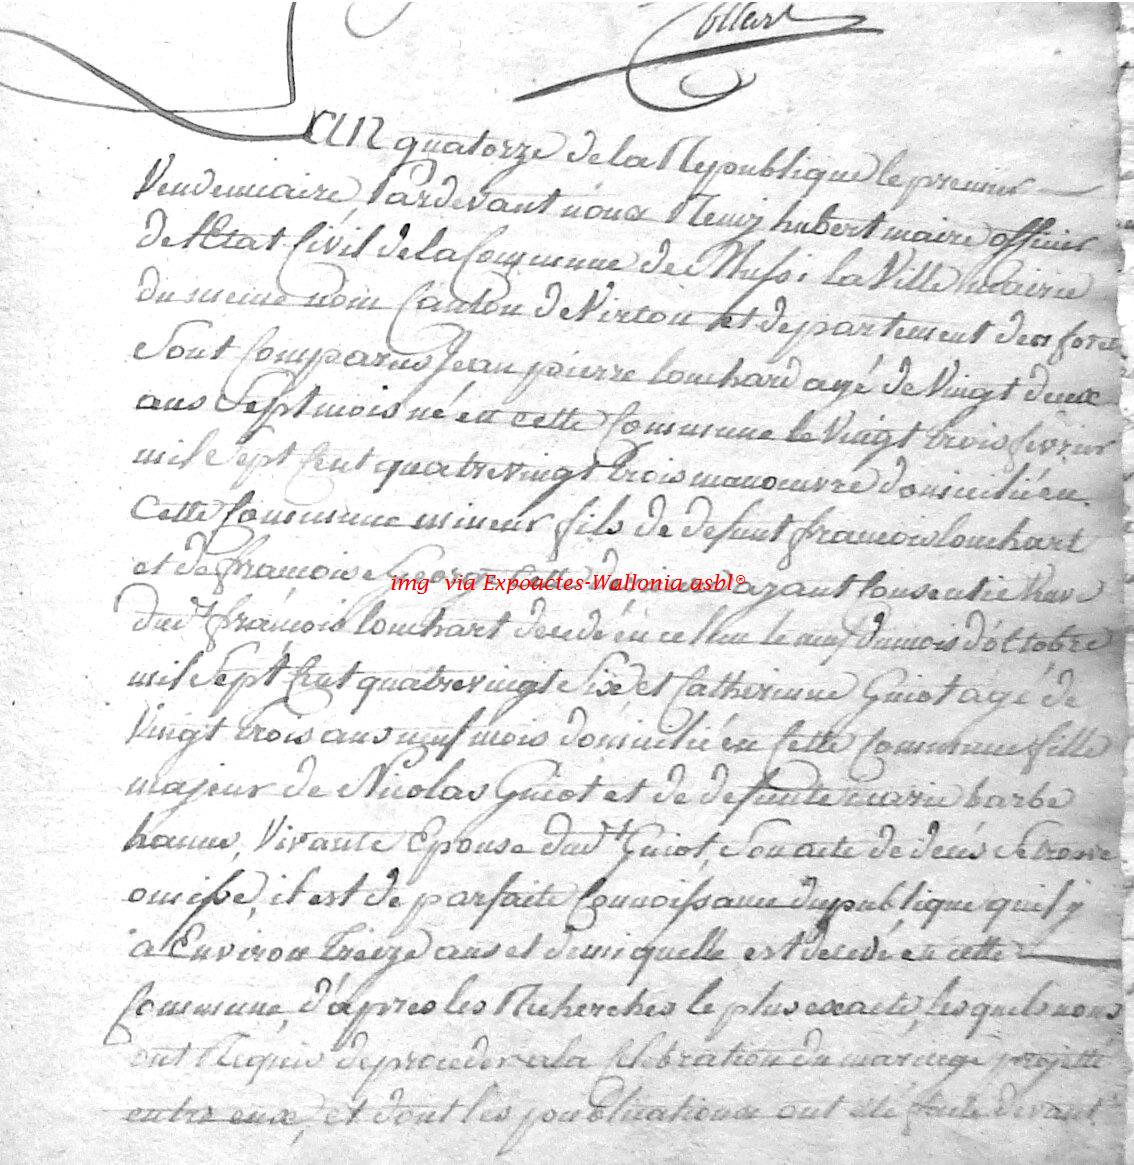 Collart
an quatorze de la Republique le premier
Vendemiaire, Pardevant nous Remy hubert maire officier
de l'Etat Civil de la Commune de Mussi la Ville mairie
du meme nom Canton de Virton et departement des foret
Sont Comparus Jean pierre louchard agé de Vingt deux
ans Sept mois né en cette Commune le vingt trois fevrier
mil Sept Cent quatrevingt trois manoeuvre domicilié en
Cette Commune mineur fils de defunt francois louchart
et de francoise George
img via Expoactes-Wallonia asbl®
ayant Consentie Veuve
dud.t francois louchart decedé en ce lieu le neuf du mois d'octobre
mil Sept Cent quatrevingt Six, et Catherinne Guiot agé de
Vingt trois ans neuf mois domicilié en Cette Commune fille
majeur de Nicolas Guiot et de defunte marie barbe
hanus, Vivante Epouse dud.t Guiot, Son acte de décés Se trouve
omisse, il est de parfaite Connoissance du publique qu'il y
a Environ treize ans et demi quelle est decedé en cette
Commune, d'après les Recherches le plus exacte, lesquels nous
ont Requis de proceder a la Celebration du mariage projetté
entre eux, et dont les publications ont été faite devant